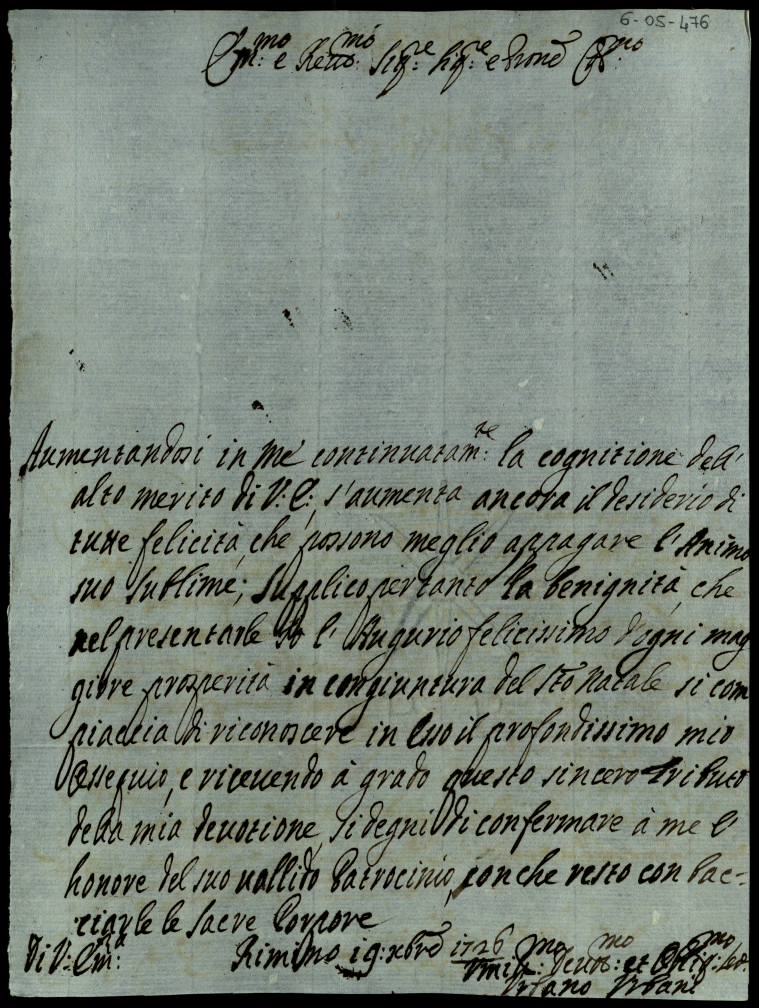 6-05-476
Em:mo e Reuo:mo Sig:re Sig:re e Prone Col:mo
Aumentandosi in me continuatam:te la cognitione dell'
alto merito di V: E:, s'aumenta ancora il desiderio di
tutte felicità, che possono meglio appagare l'Animo
suo sublime; supplico pertanto la benignità, che
nel presentarle Io l'Augurio felicissimo d'ogni mag
giore prosperità in congiuntura del Sto Natale si com
piaccia di riconoscere in esso il profondissimo mio
Ossequio, e riceuendo à grado questo sincero tributo
della mia deuotione, si degni di confermare à me l'
honore del suo uallido Patrocinio, con che resto con bac-
ciarle le Sacre Porpore
Di V: Em:za Rimino 19: xbre 1726
Vmil:mo Deuot:mo et Oblig:mo Se.
Vrbano Vrbani